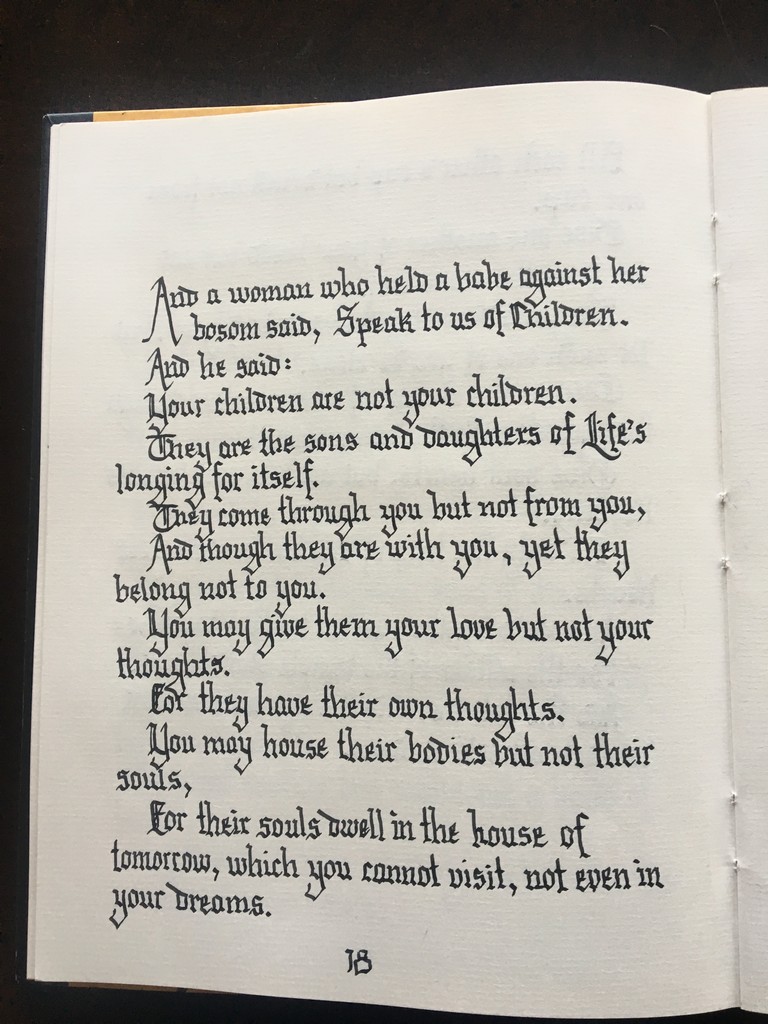 And a woman who held a babe against her
bosom said, Speak to us of Children.
And he said:
Your children are not your children.
They are the sons and daughters of Life's
longing for itself.
They come through you but not from you,
And though they are with you, yet they
belong not to you.
You may give them your love but not your
thoughts.
For they have their own thoughts.
You may house their bodies but not their
souls,
For their souls dwell in the house of
tomorrow, which you cannot visit, not even in
your dreams.
18